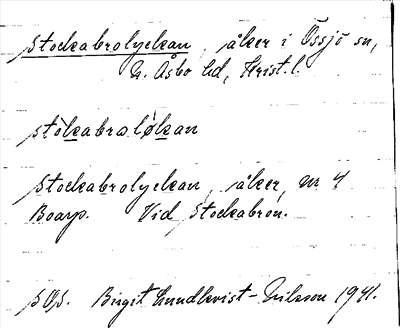 Stockabrolyckan, åker i Össjö sn,
N. Åsbo hd, Krist. l.
stòkabralø̀kan
Stockabrolyckan, åker, nr 4
Boarp. Vid Stockabron.
SOS. Birgit Lundkvist-Nilsson 1941.